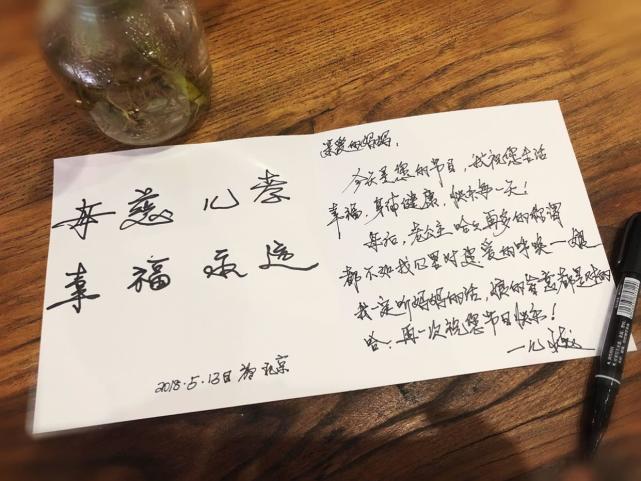 母慈儿孝
幸福永远
2018.5.13日于北京
亲爱的妈妈:
今天是您的节日,我祝您生活
幸福,身体健康,快乐每一天!
母后,老公主哈太再多的称谓
都不如我心里对您爱的呼唤一娘
我一定听妈妈的话,娘的旨意都是好的
哈.再一次祝您节日快乐!
一儿